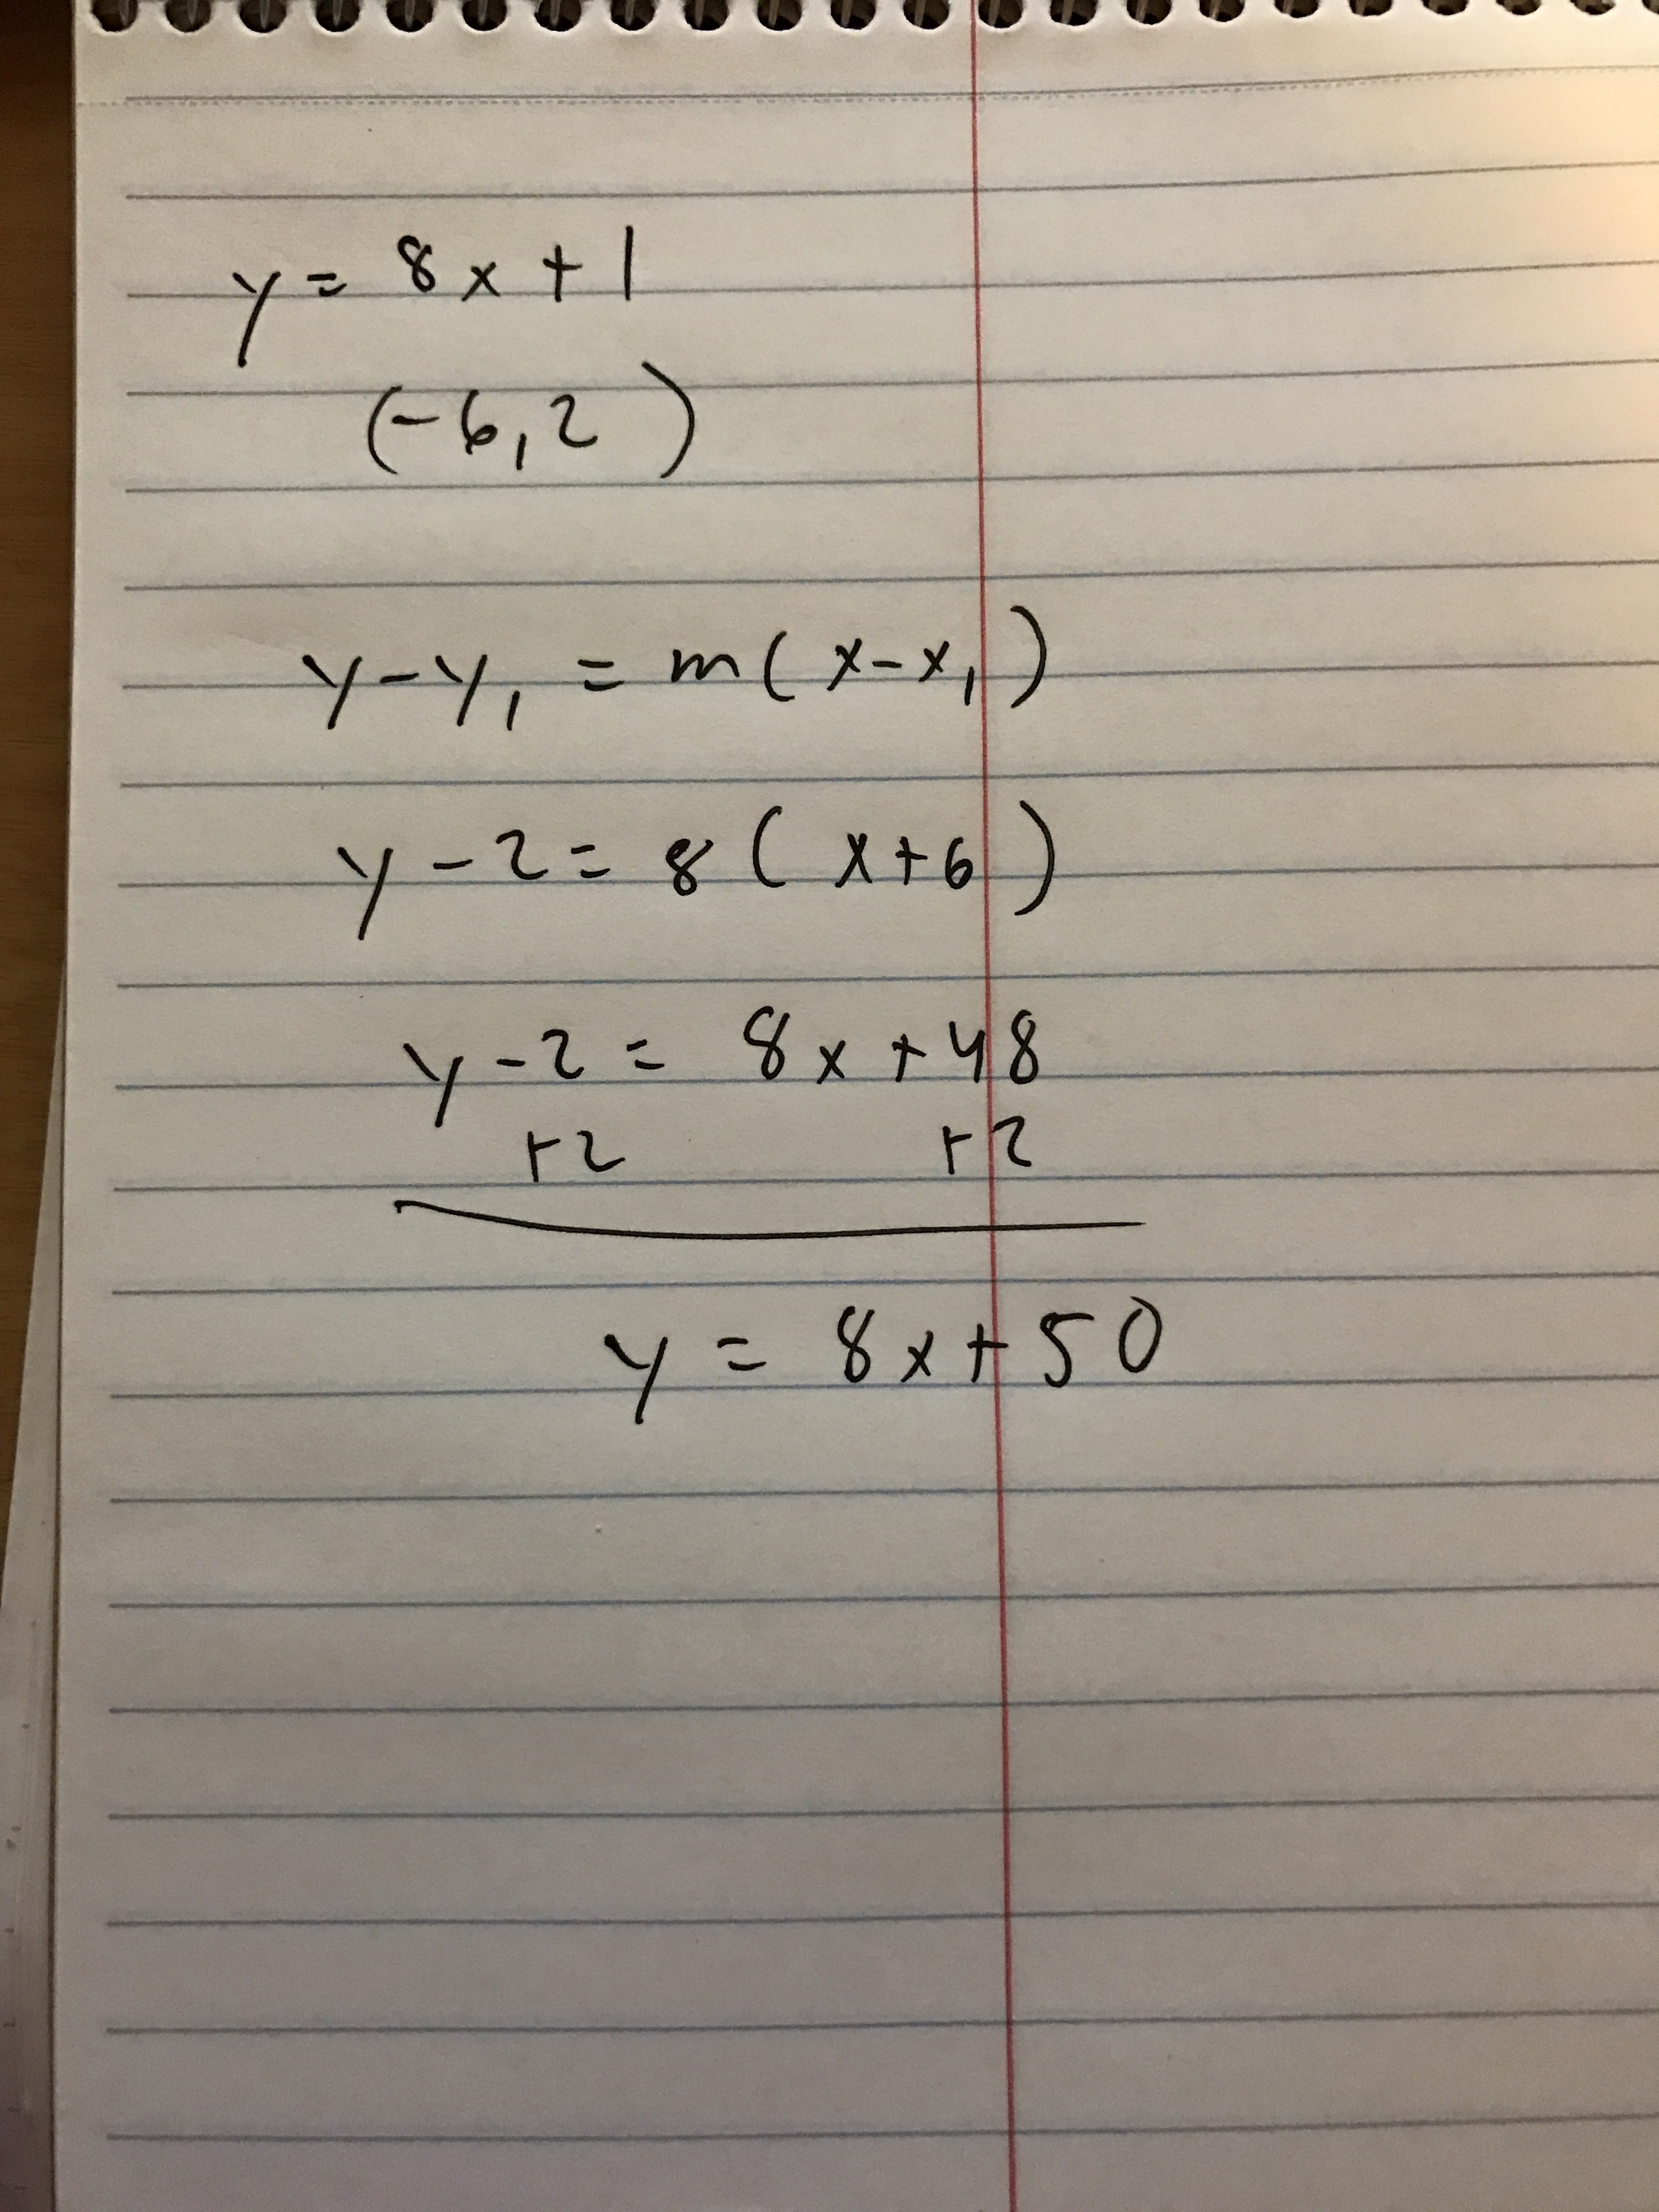 y = 8x + 1
(-6,2)
y-y₁ = m(x-x₁)
y-2= 8(x+6)
y-2= 8x+48
+2 +2
y = 8x+50